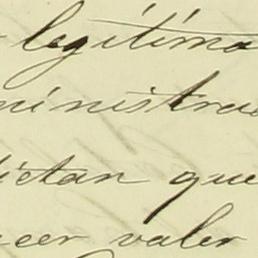 legitima
ministra
dictan que
acer valer